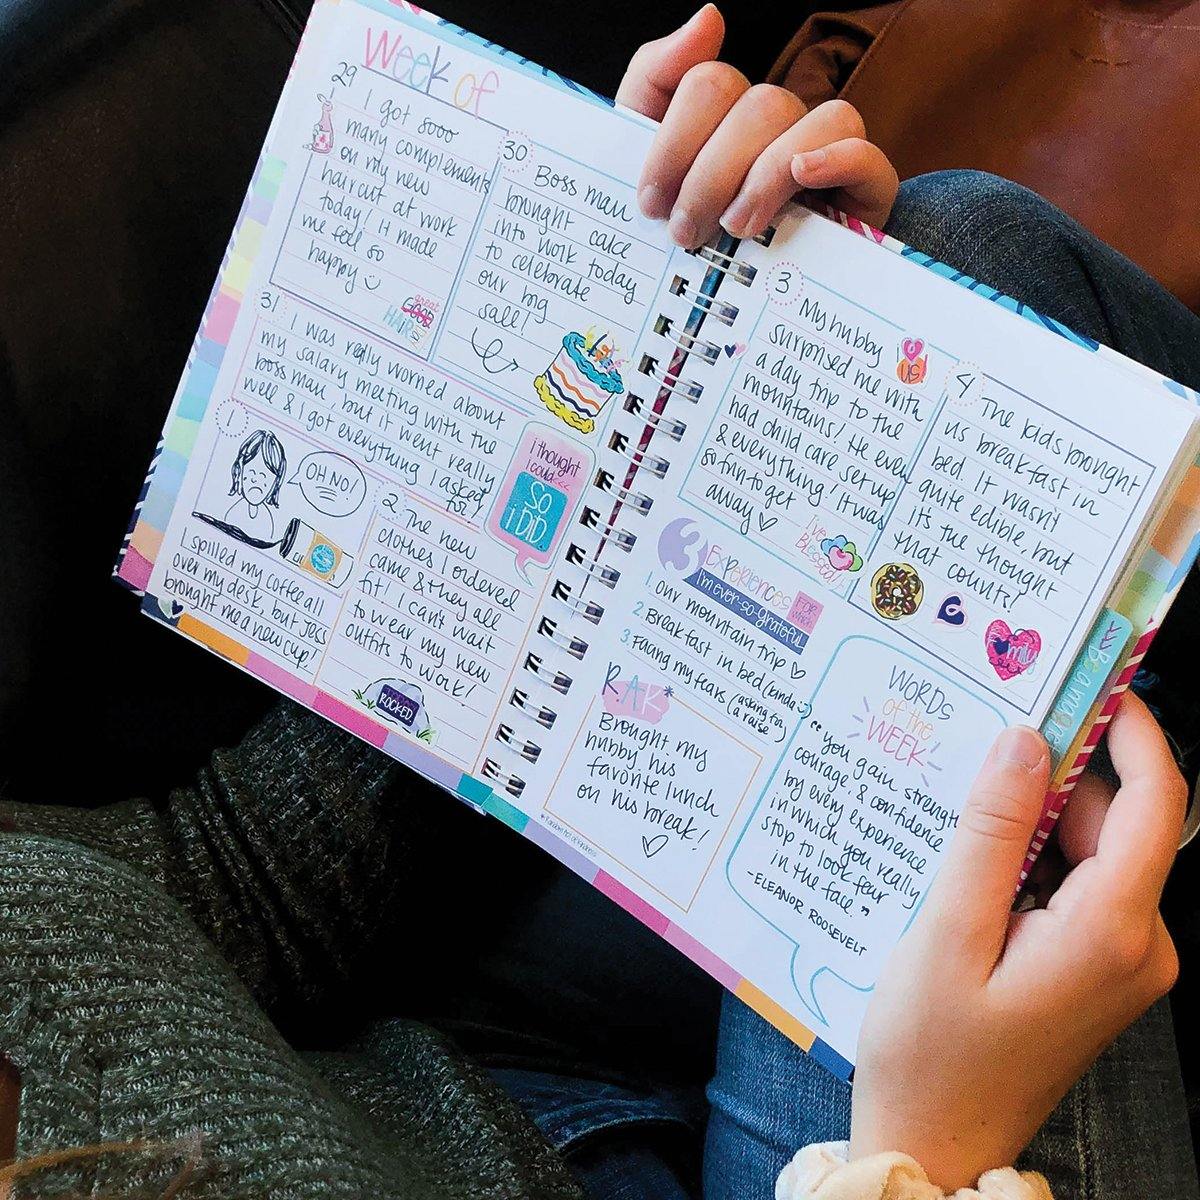 Week of
29
I got sooo
many complements
on my new
haircut at work
today! It made
me feel so
happy
great
GOOD
HAIR
30
Boss man
brought cake
into work today
to celebrate
our big
sale!
31
I was really worried about
my salary meeting with the
boss man, but it went really
well & I got everything I asked
for!
I thought
I could
SO
I DID.
1
OH NO!
I spilled my coffee all
over my desk, but Jess
brought me a new cup!
2
The new
clothes I ordered
came & they all
fit! I can't wait
to wear my new
outfits to work!
ROCKED
3
My hubby
surprised me with
a day trip to the
mountains! He even
had child care set up
& everything! It was
so fun to get
away ♡
US
I've
Blessed!
4
The kids brought
us breakfast in
bed. It wasn't
quite edible, but
it's the thought
that counts!
Family
3
EXPERIENCES
FOR
which
I'm ever-so-grateful
1. Our mountain trip ♡
2. Breakfast in bed (kinda)
3. Facing my fears (asking for
a raise)
R.A.K*
Brought my
hubby his
favorite lunch
on his break!
♡
*Random Act of Kindness
WORDS
of the
WEEK
"You gain strength
courage, & confidence
by every experience
in which you really
stop to look fear
in the face."
-ELEANOR ROOSEVELT